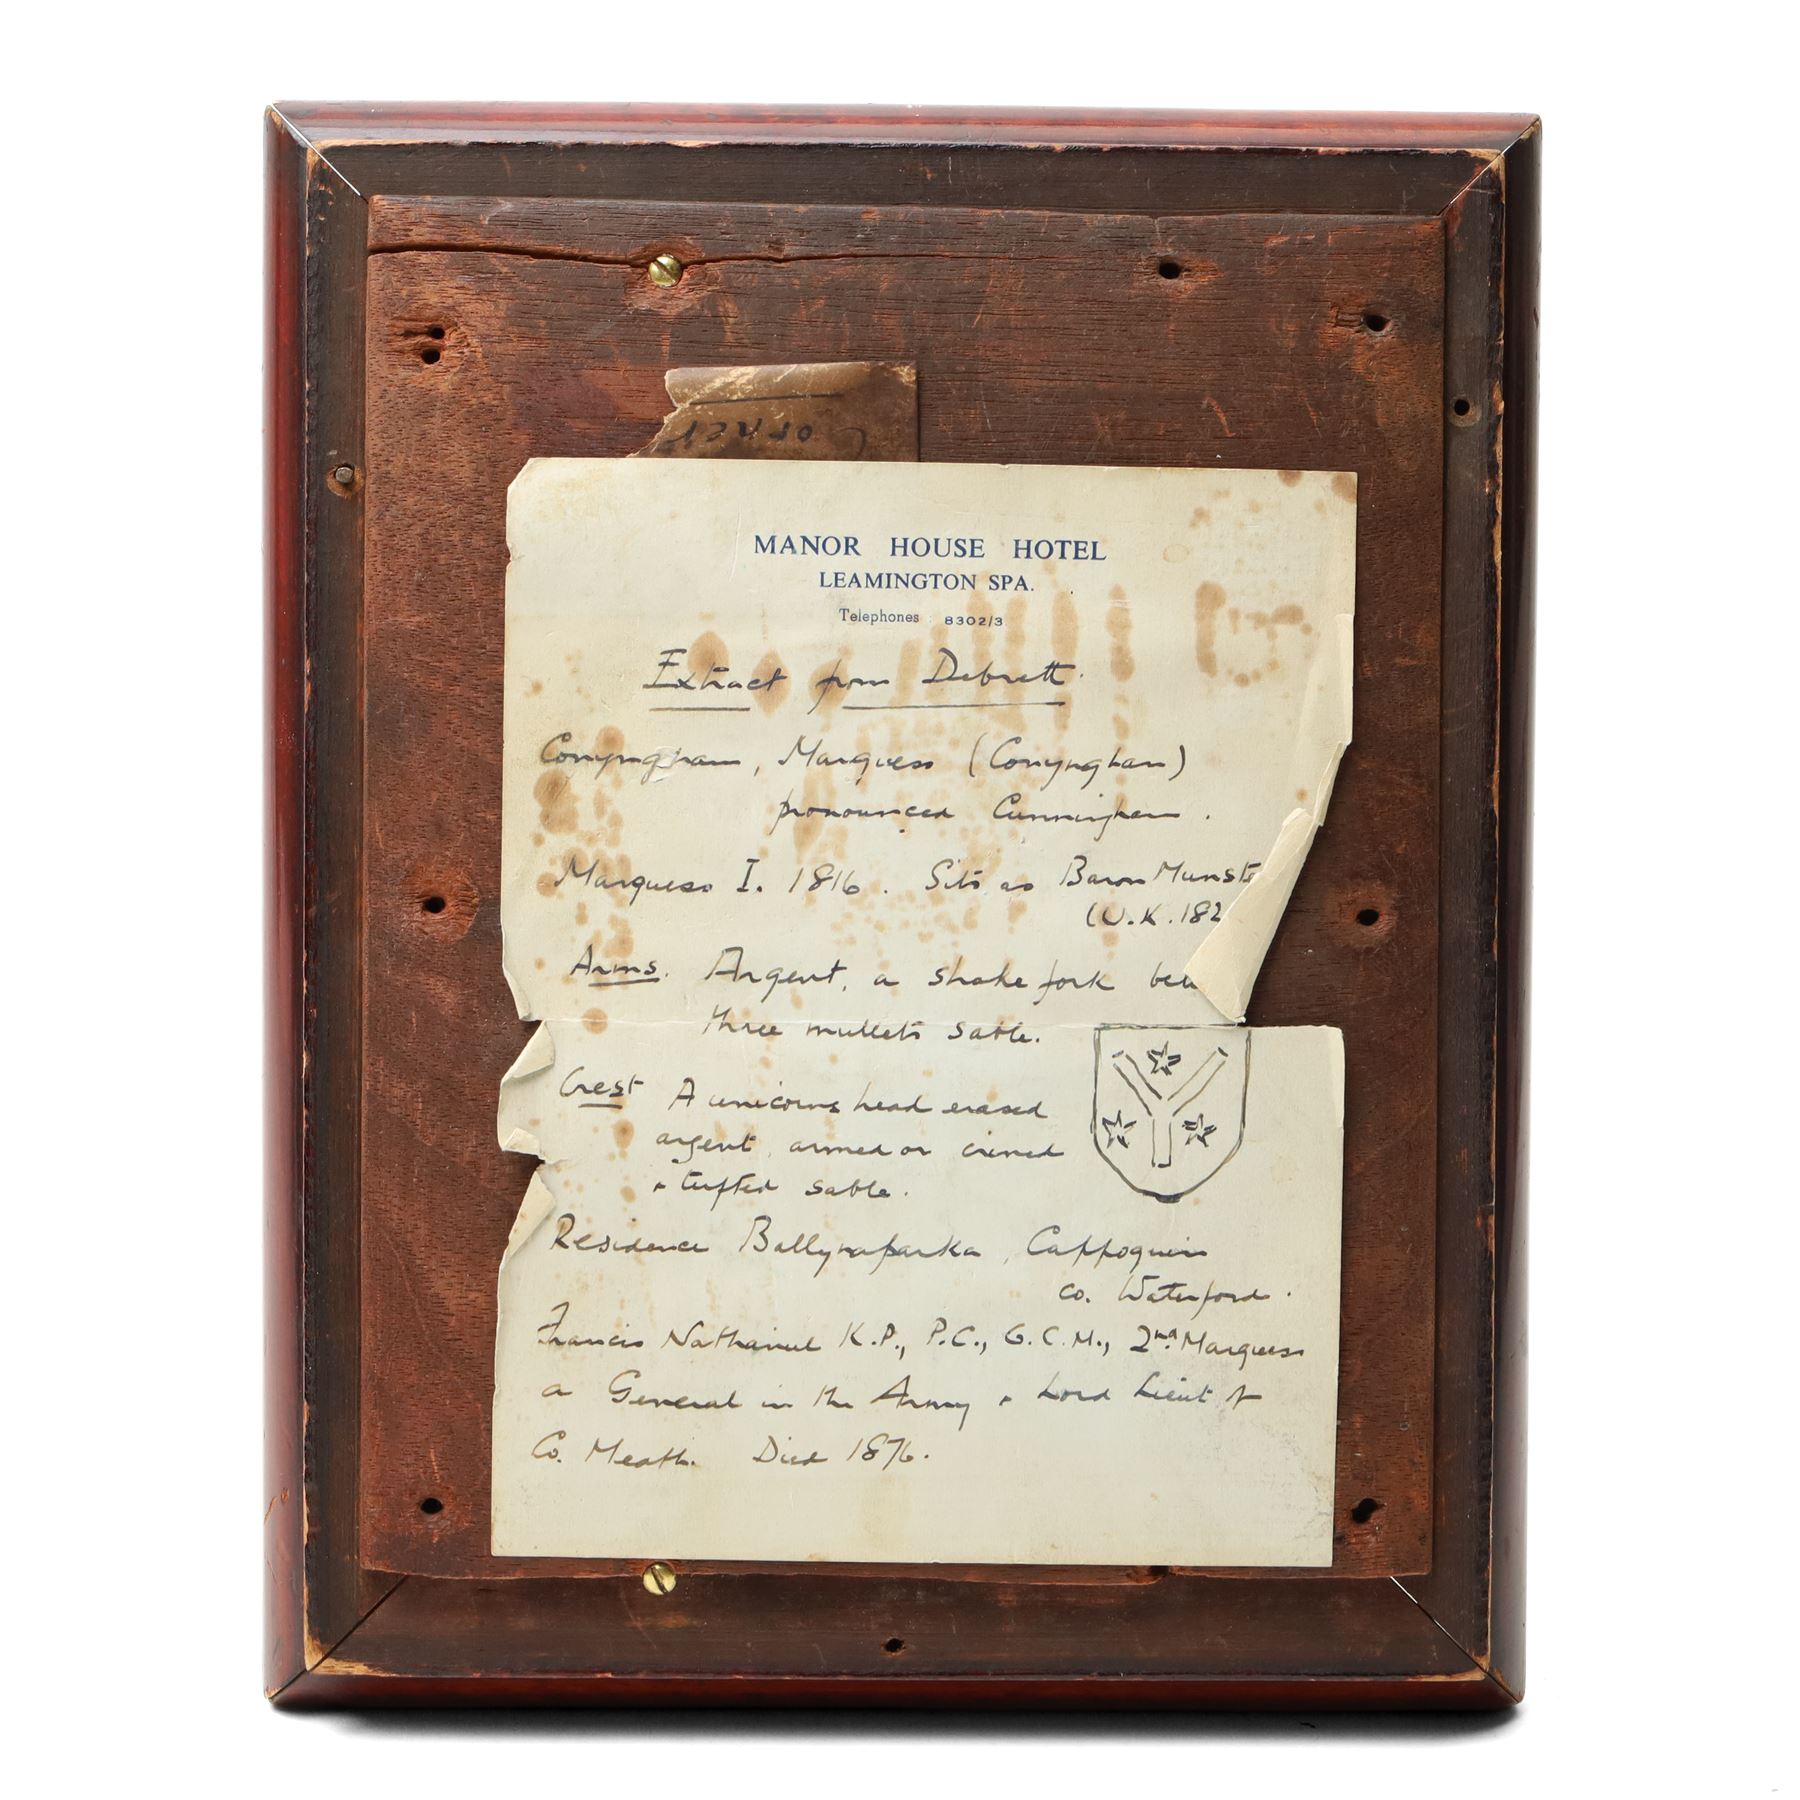 Corner
MANOR HOUSE HOTEL
LEAMINGTON SPA.
Telephones 8302/3
Extract from Debrett.
Conyngham, Marquess (Conyngham)
pronounced Cunningham.
Marquess I. 1816. Sits as Baron Munste
(U.K. 182
Arms. Argent, a shake fork
three mullets sable.
Crest A unicorns head erased
argent, armed or crined
+ tufted sable.
Residence Ballynaparka, Cappoquin
co. Waterford.
Francis Nathaniel K.P., P.C., G.C.M., 2nd. Marquess
a General in the Army + Lord Lieut of
Co. Meath. Died 1876.